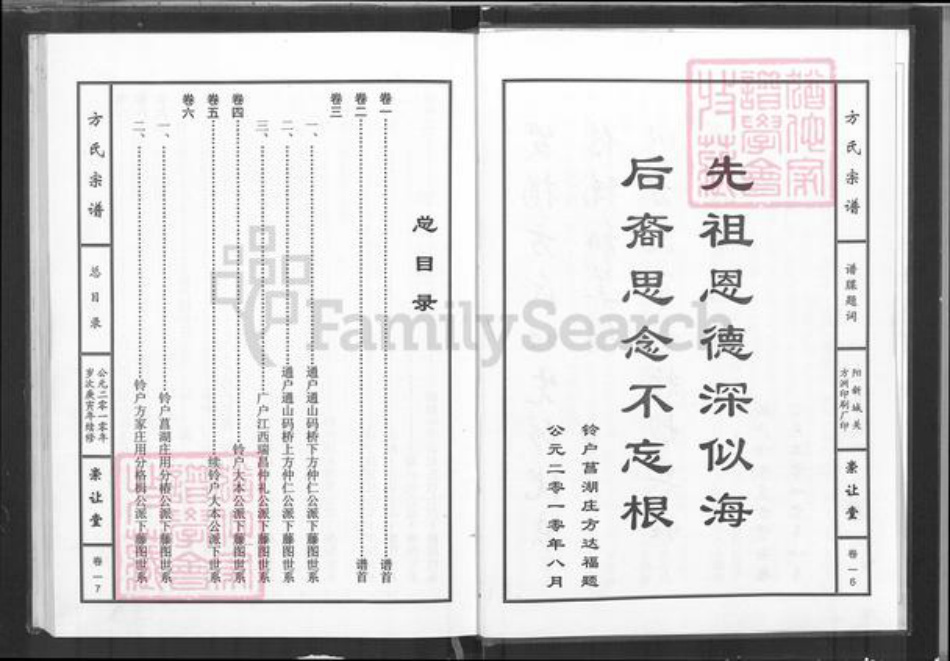 方氏宗谱
谱牒题词
阳新城关
方洲印刷厂印
崇让堂
卷一6
先祖恩德深似海
后裔思念不忘根
铃户菖湖庄方达福题
公元二零一零年八月
总目录
卷一……谱首
卷二……谱首
卷三
一、……通户通山码桥下方仲仁公派下藤图世系
二、……通户通山码桥上方仲仁公派下藤图世系
三、……广户江西瑞昌仲礼公派下藤图世系
卷四……铃户大本公派下藤图世系
卷五……续铃户大本公派下世系
卷六
一、……铃户菖湖庄用分椿公派下藤图世系
二、……铃户方家庄用分格楫公派下藤图世系
方氏宗谱
总目录
公元二零一零年
岁次庚寅年续修
崇让堂
卷一7
FamilySearch